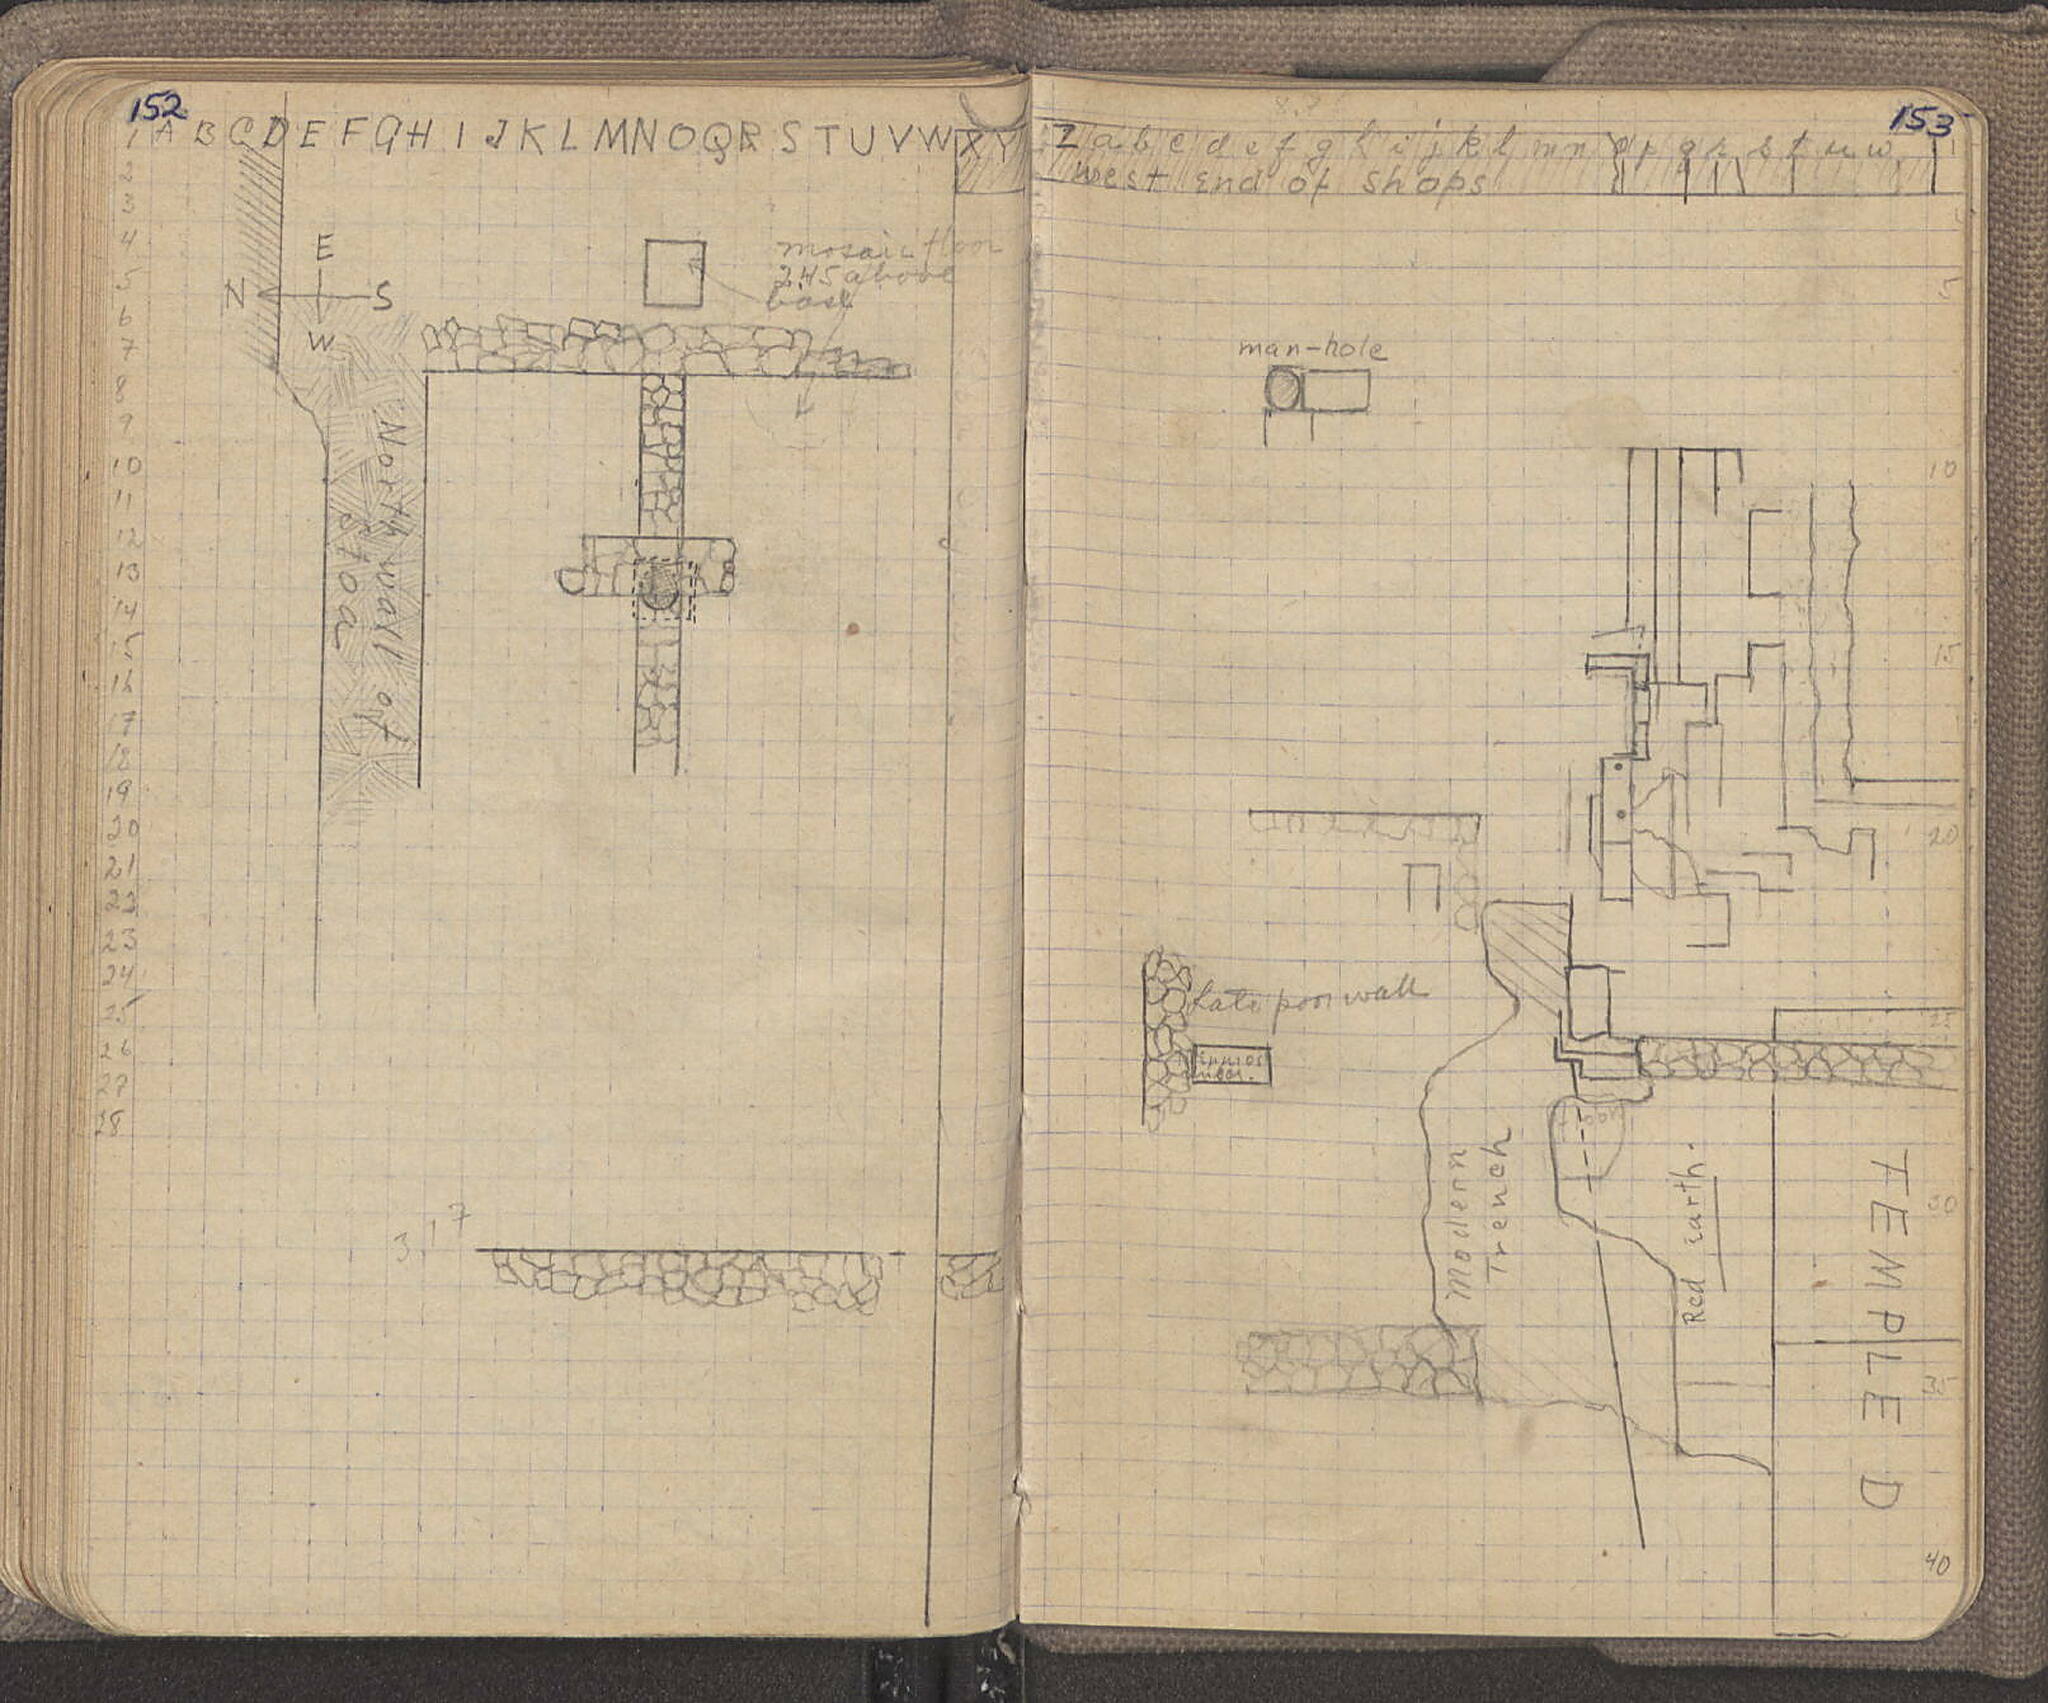 152
A B C D E F G H I J K L M N O Q R S T U V W X Y
1
2
3
4
5
6
7
8
9
10
11
12
13
14
15
16
17
18
19
20
21
22
23
24
25
26
27
28
E
N S
W
mosaic floor
2.45 above
base
North wall of
stoa
3.17
153
Z a b c d e f g h i j k l m n o p q r s t u w
1
West end of shops
5
10
15
20
25
30
35
40
man-hole
Late poor wall
Modern
Trench
Red earth.
TEMPLE D